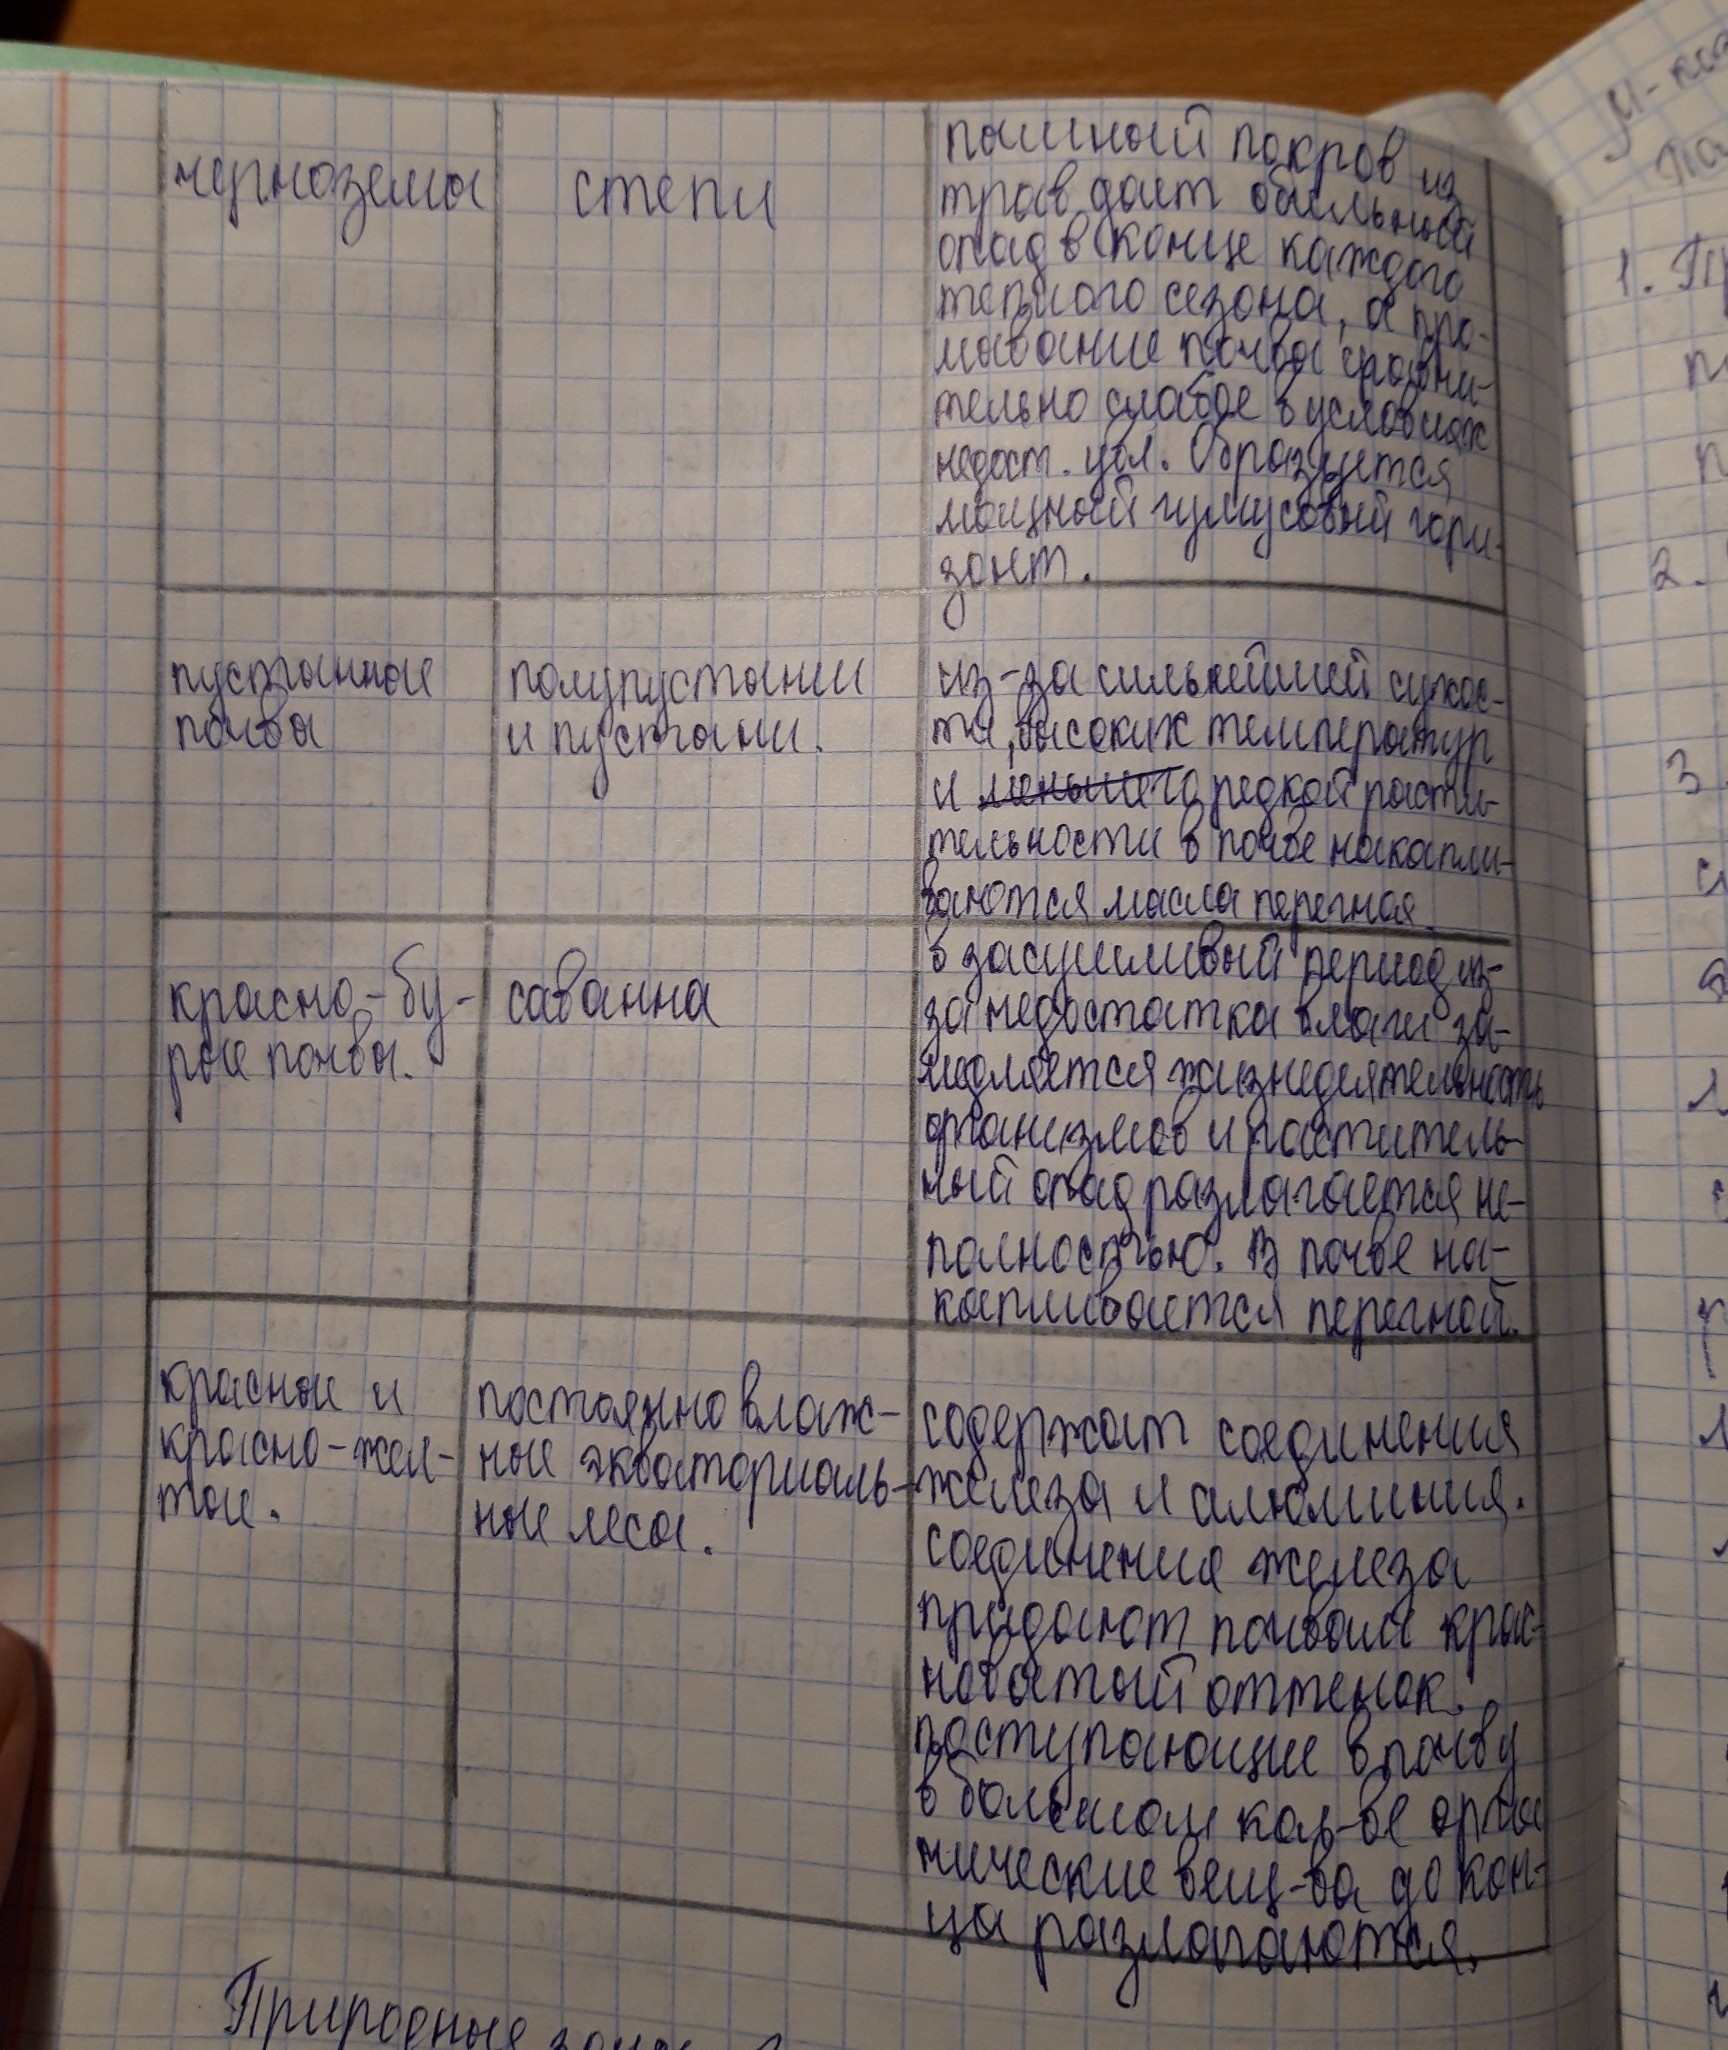 чернозема
степи
пышный покров из
трав дает обильный
опад в конце каждого
теплого сезона, а про-
мывание почвы сравни-
тельно слабое в условиях
недост. увл. Образуется
мощный гумусовый гори-
зонт.
пустынные
почвы
полупустыни
и пустыни.
из-за сильнейшей сухос-
ти, высоких температур
и меньшего редкой расти-
тельности в почве накапли-
ваются масла перегная
красно-бу-
рые почвы.
саванна
в засушливый период из-
за недостатка влаги за-
медляется жизнедеятельность
организмов и раститель-
ный опад разлагается не-
полностью. В почве на-
капливается перегной.
красные и
красно-жел-
тые.
постоянно влаж-
ные экваториаль-
ные леса.
содержат соединения
железа и алюминия.
соединение железа
придают почвам крас-
новатый оттенок.
поступающие в почву
в большом кол-ве орга
нические вещ-ва до кон-
ца разлагаются.
Природные зоны
1.
2.
3